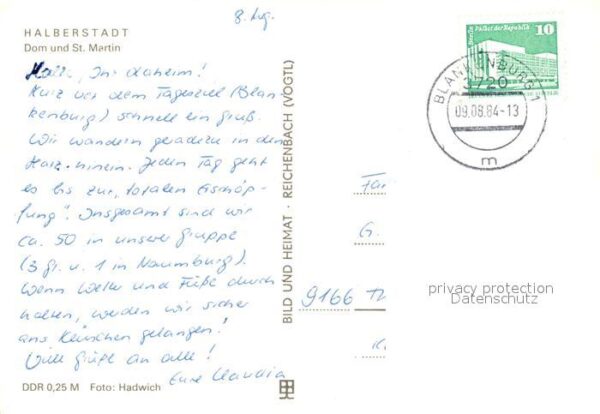 8. Aug.
HALBERSTADT
Dom und St. Martin
Hallo, Ihr daheim!
Kurz vor dem Tagesziel (Blan-
kenburg) schnell ein Gruß.
Wir wandern geradezu in den
Harz hinein. Jeden Tag geht
es bis zur "totalen Erschöp-
fung". Insgesamt sind wir
ca. 50 in unserer Gruppe
(3 gr. u. 1 in Naumburg).
Wenn Wetter und Füße durch
halten, werden wir sicher
ans Ziel gelangen!
Viele Grüße an alle!
Eure Claudia
DDR 0,25 M Foto: Hadwich
BILD UND HEIMAT · REICHENBACH (VOGTL)
Berlin, Palast der Republik
10
BLANKENBURG 1
3720
09.08.84-13
m
Fa
G.
9166
K.
privacy protection
Datenschutz